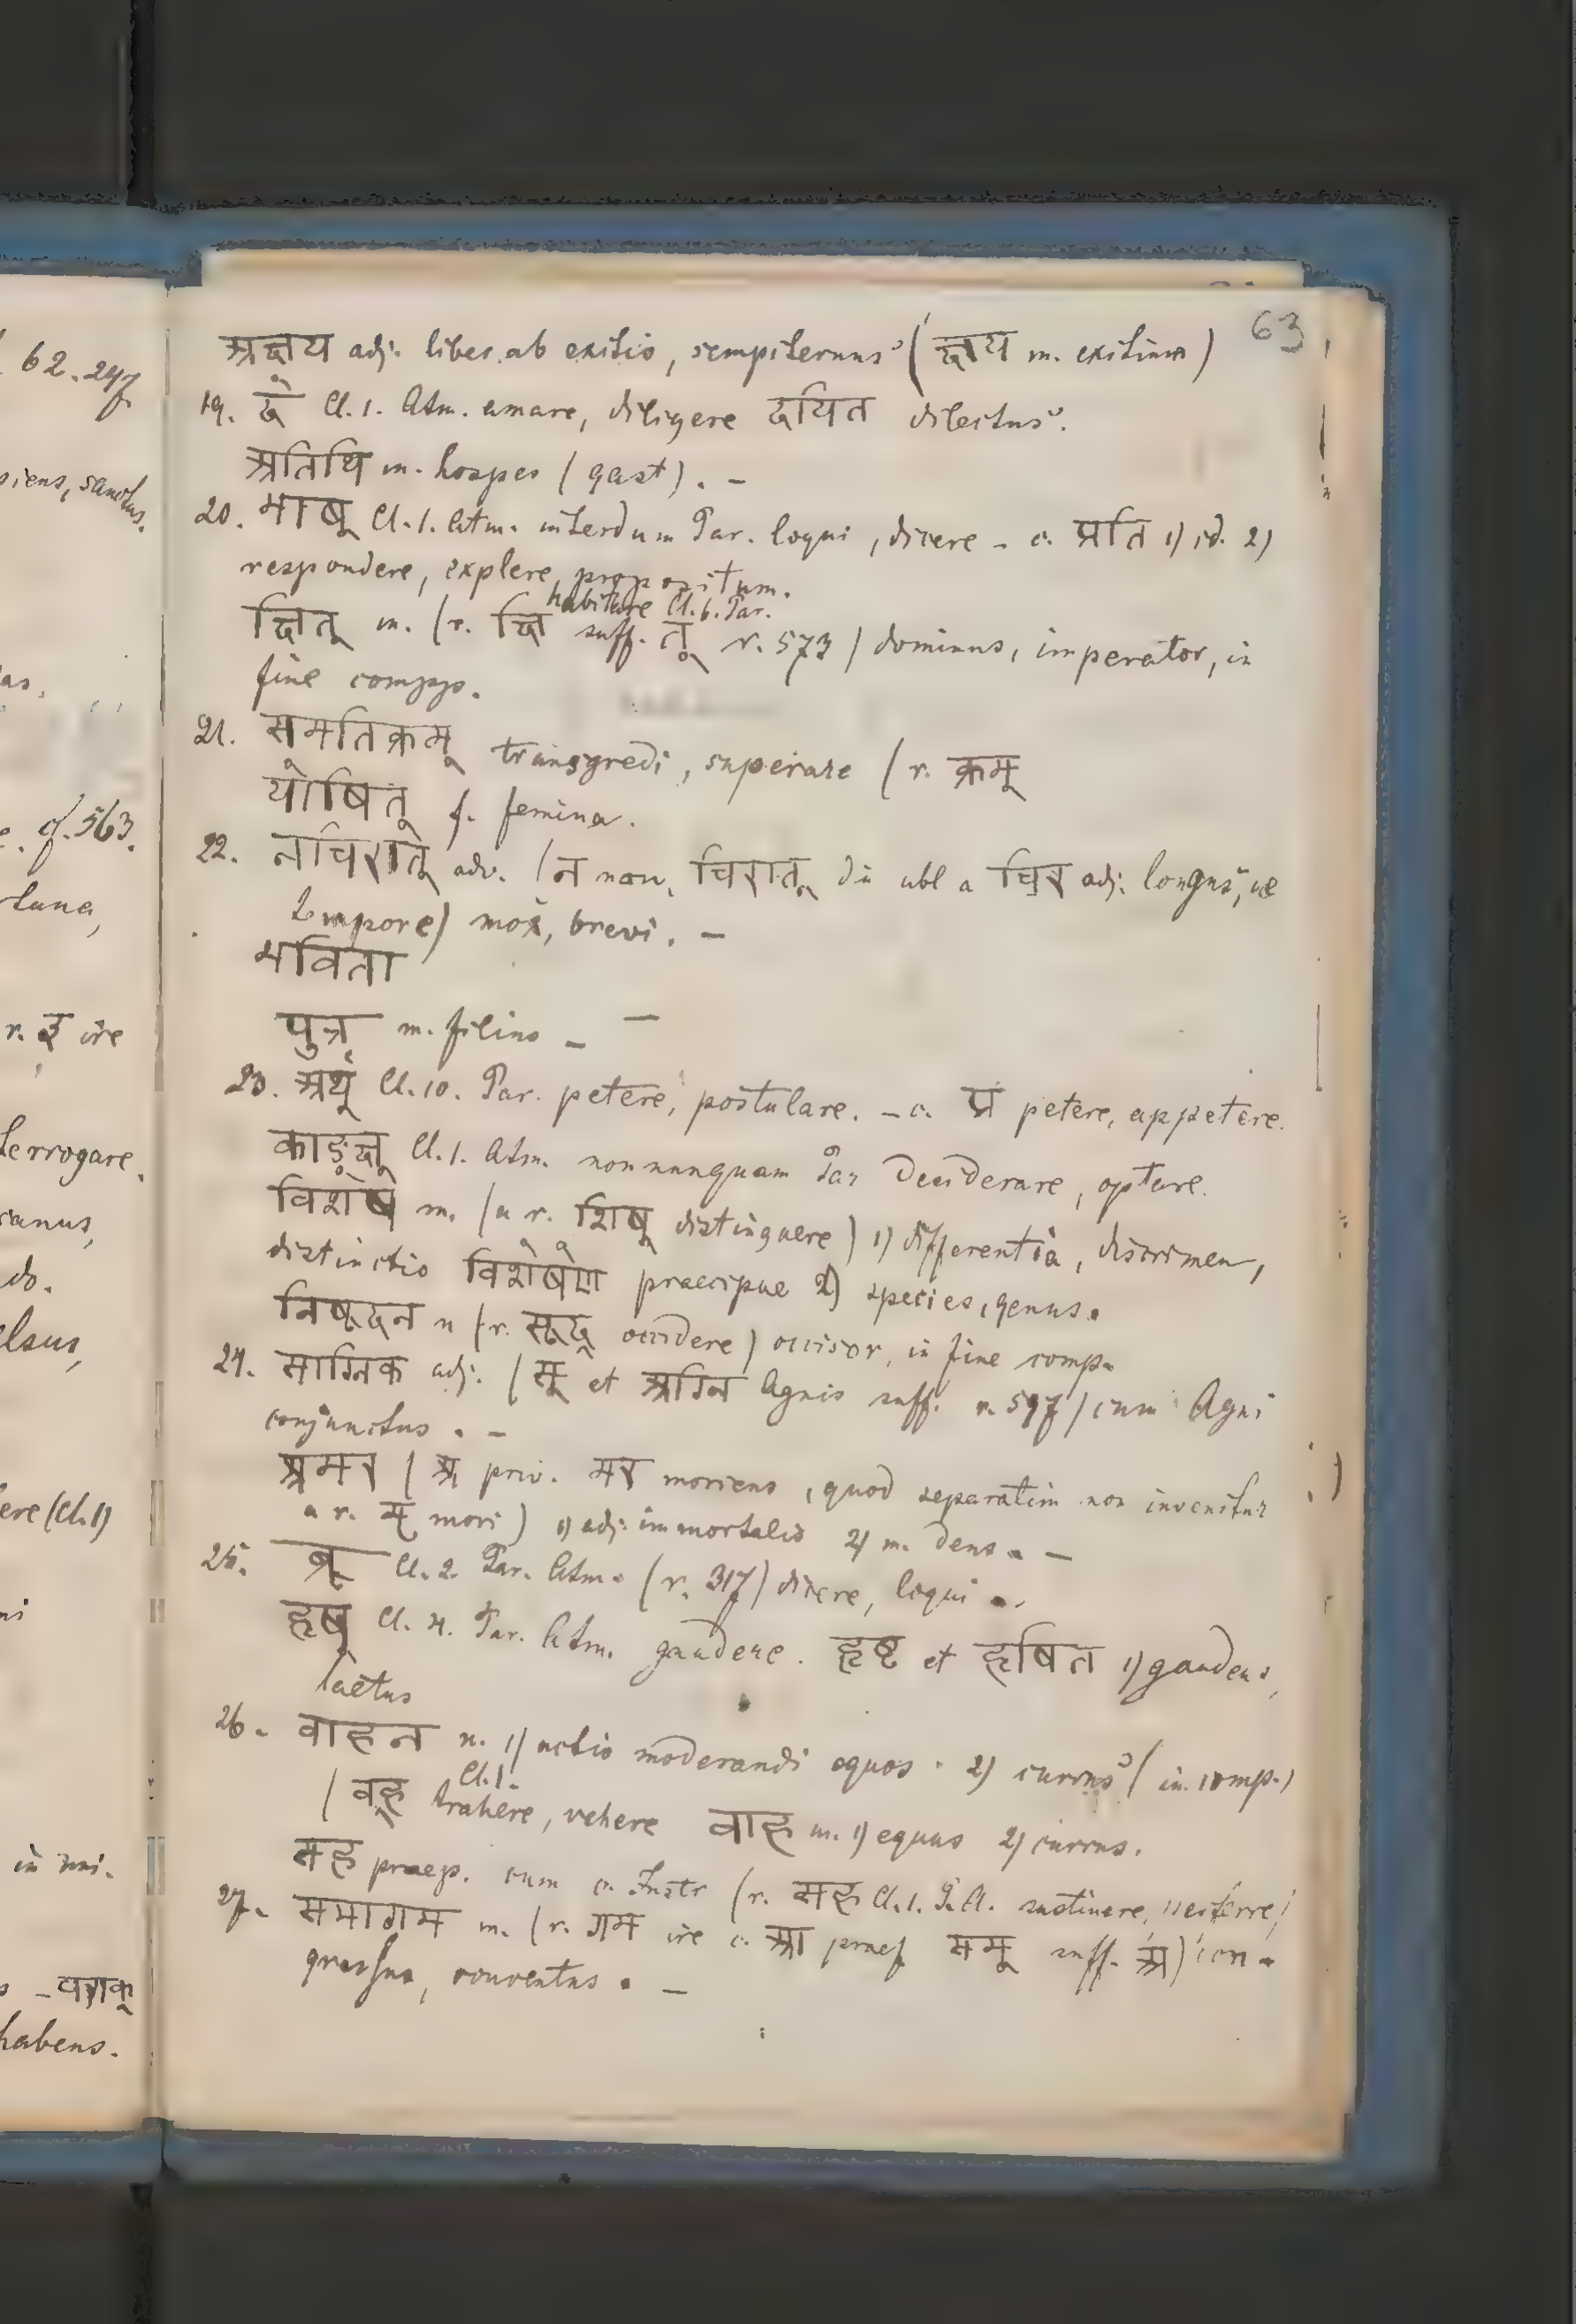 63
अक्षय adj. liber ab exitio, sempiternus (क्षय m. exitium)
19. दे Cl. 1. Atm. amare, diligere दयित dilectus.
अतिथि m. hospes (gast). –
20. भाष् Cl. 1. Atm. interdum Par. loqui, dicere – c. प्रति 1) id. 2)
respondere, explere, propositum.
habitare Cl. 6. Par.
क्षित् m. (r. क्षि suff. त् r. 573) dominus, imperator, in
fine compp.
21. समतिक्रम् transgredi, superare (r. क्रम्
योषित् f. femina.
22. नचिरात् adv. (न non, चिरात् diu abl a चिर adj. longus, de
tempore) mox, brevi. –
भविता
पुत्र m. filius – –
23. अर्थ् Cl. 10. Par. petere, postulare. – c. प्र petere, appetere.
काङ्क्ष् Cl. 1. Atm. non nunquam Par desiderare, optare.
विशेष m. (a r. शिष् distinguere) 1) differentia, discrimen,
distinctio विशेषेण praecipue 2) species, genus.
निषूदन n (r. सूद् occidere) occisor, in fine comp.
24. साग्निक adj. (स् et अग्नि Agnis suff. r. 597) cum Agni
conjunctus. –
अमर (अ priv. मर moriens, quod separatim non invenitur
a r. मृ mori) 1) adj. immortalis 2) m. deus. –
25. ब्रू Cl. 2. Par. Atm. (r. 317) dicere, loqui.
हृष् Cl. 4. Par. Atm. gaudere. हृष्ट et हृषित 1) gaudens,
laetus
26. वाहन n. 1) actio moderandi equos. 2) currus (in comp.)
Cl. 1.
(वह् trahere, vehere वाह m. 1) equus 2) currus.
सह praep. cum c. Instr (r. सह Cl. 1. P. A. sustinere,
27. समागम m. (r. गम ire c. आ praef सम् suff. अ) con-
gressus, conventus. –
62. 247
siens, sanctus.
as.
cf. 563.
tuna,
r. इ ire
terrogare.
ranus,
do.
elsus,
ere (Cl. 1)
ni
habens.